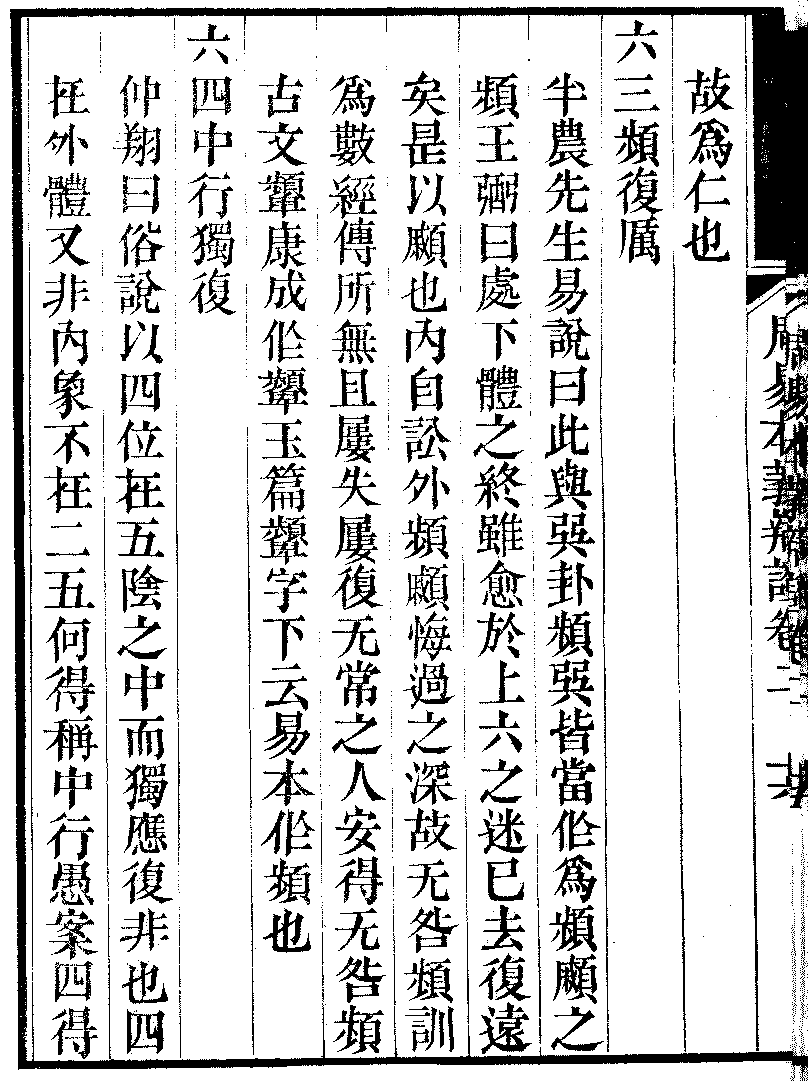 故爲仁也
六三頻復厲
半農先生易說曰此與巽卦頻巽皆當作爲頻顣之
頻王弼曰處下體之終雖愈於上六之迷已去復遠
矣是以顣也內自訟外頻顣悔過之深故无咎頻訓
爲數經傳所無且屢失屢復无常之人安得无咎頻
古文顰康成作顰玉篇顰字下云易本作頻也
六四中行獨復
仲翔曰俗說以四位在五陰之中而獨應復非也四
在外體又非內象不在二五何得稱中行愚案四得
周易本義辨證卷二